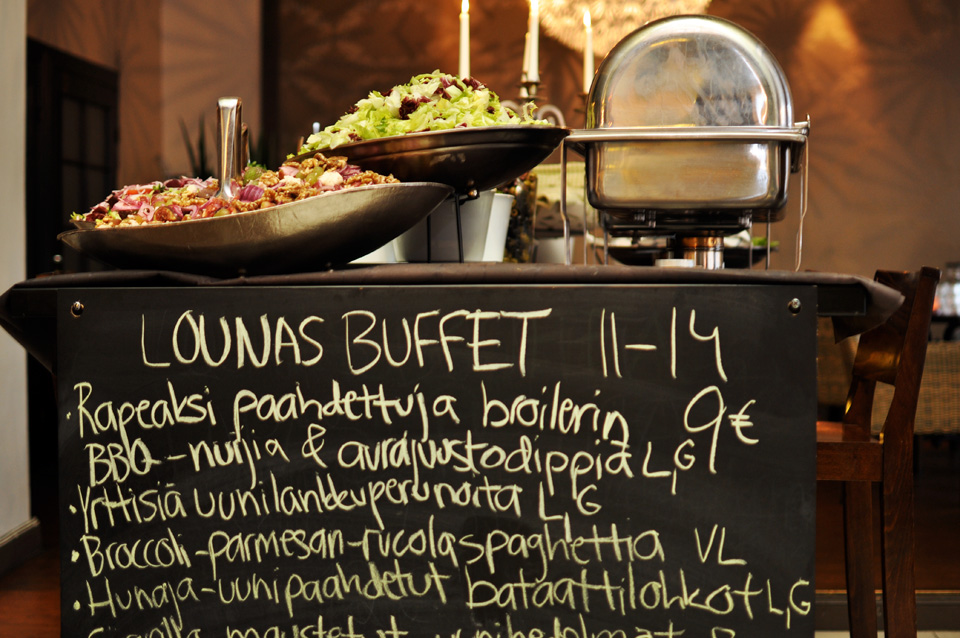 LOUNAS BUFFET 11-14
·Rapeaksi paahdettuja broilerin 9€
BBQ-nuijia & aurajuustodippiä L,G
·Yrttisiä uunilankkuperunoita L,G
·Broccoli-parmesan-rucolaspaghettia VL
·Hunaja-uunipaahdetut bataattilohkot L,G
maustetut